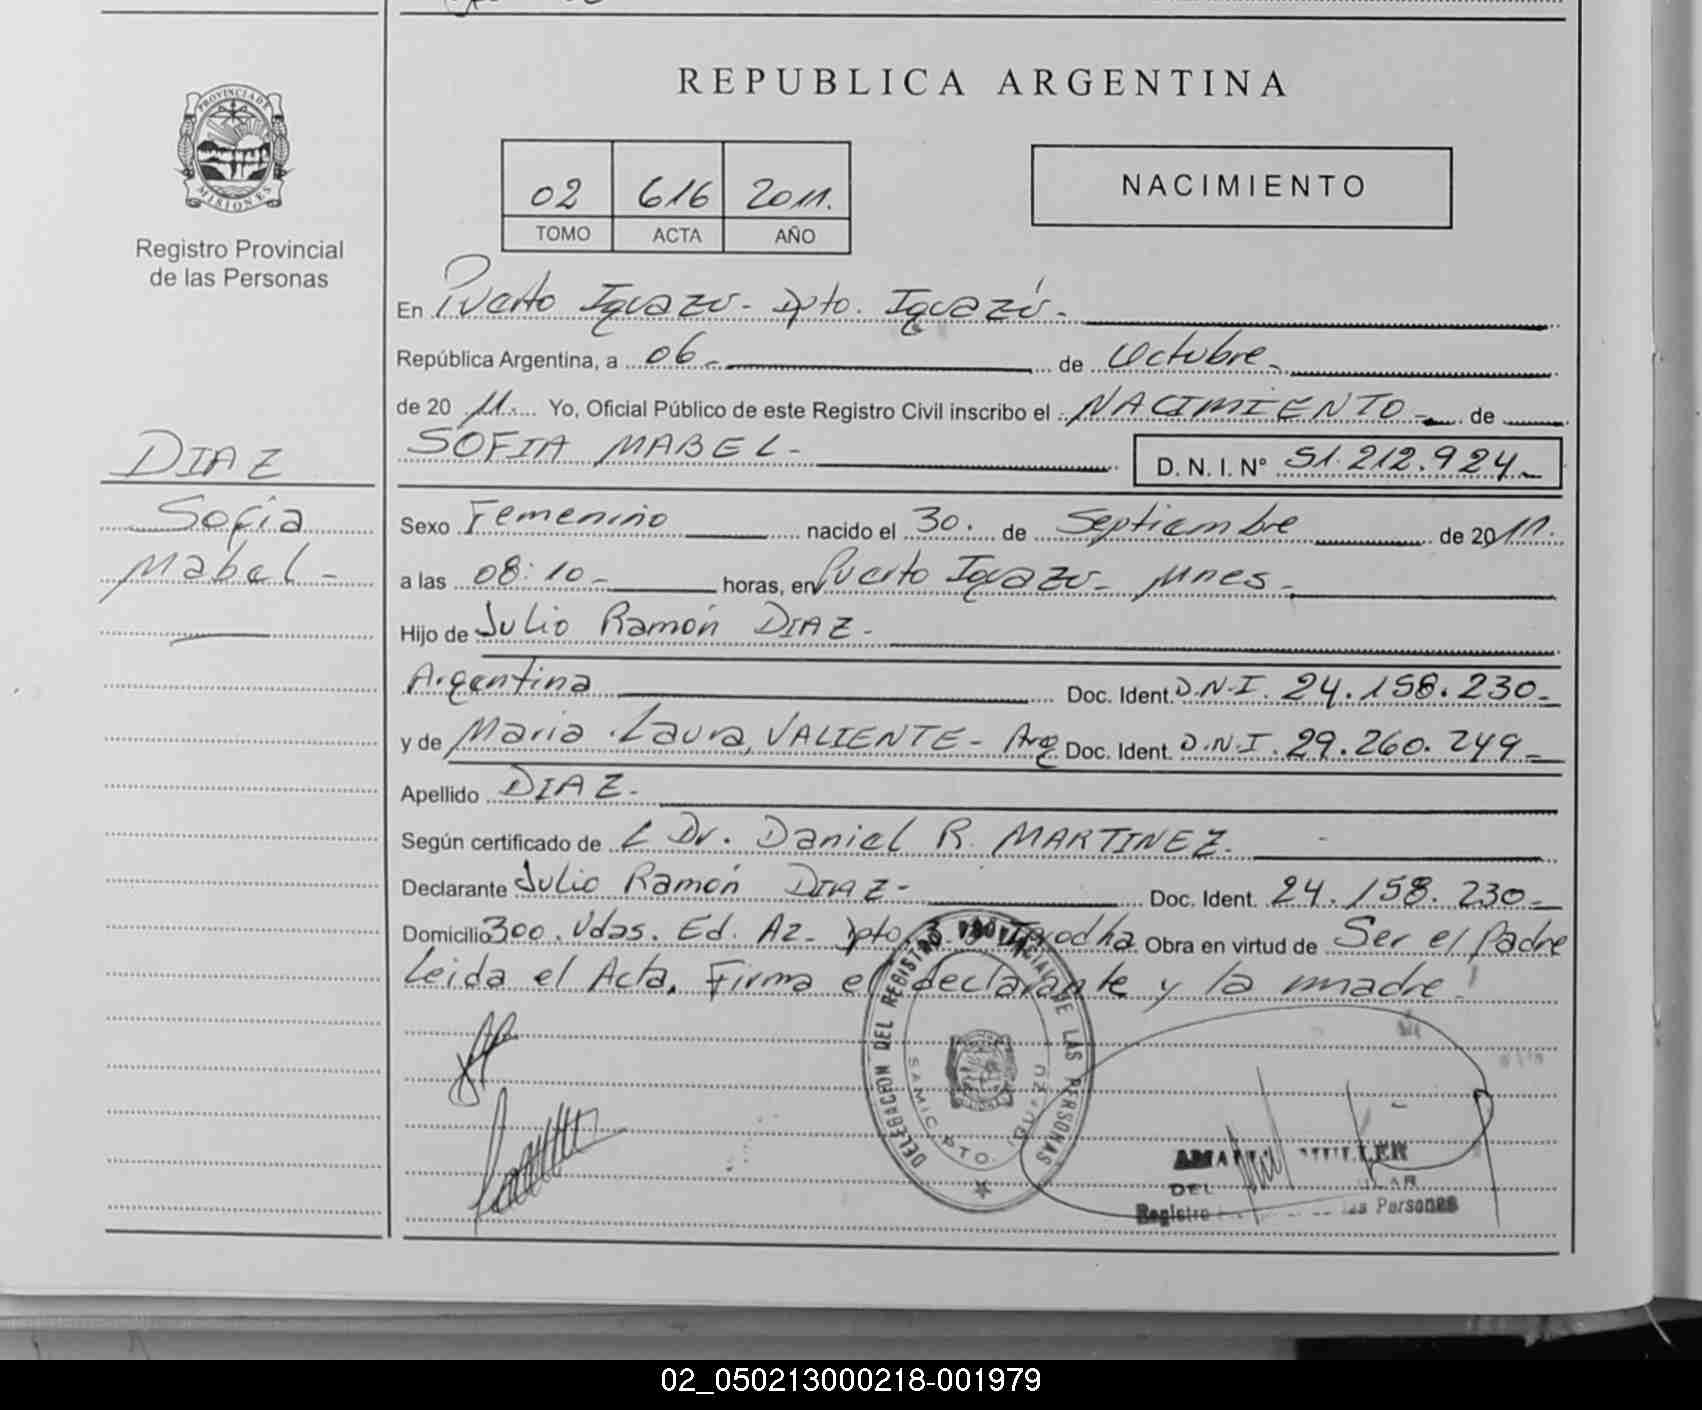 REPUBLICA ARGENTINA
PROVINCIA DE MISIONES
Registro Provincial
de las Personas
02 616 2011.
TOMO ACTA AÑO
NACIMIENTO
En Puerto Iguazú - Dpto. Iguazú -
República Argentina, a 06 - de Octubre -
de 20 11. Yo, Oficial Público de este Registro Civil inscribo el NACIMIENTO - de
SOFIA MABEL - D. N. I. N° 51.212.924 -
DIAZ
Sofia
Mabel -
Sexo Femenino nacido el 30. de Septiembre de 20 11.
a las 08:10 - horas, en Puerto Iguazú - Mnes -
Hijo de Julio Ramón DIAZ -
Argentina Doc. Ident. D.N.I. 24.158.230 -
y de Maria Laura VALIENTE - Arg Doc. Ident. D.N.I. 29.260.249 -
Apellido DIAZ -
Según certificado de L Dr. Daniel R. MARTINEZ.
Declarante Julio Ramón DIAZ - Doc. Ident. 24.158.230 -
Domicilio 300. Vdas. Ed. Az - Dpto Obra en virtud de Ser el Padre
Leida el Acta, Firma el declarante y la madre.
DELEGACION DEL REGISTRO PROVINCIAL DE LAS PERSONAS
PTO. IGUAZU
MULLER
DEL
Registro las Personas
02_050213000218-001979